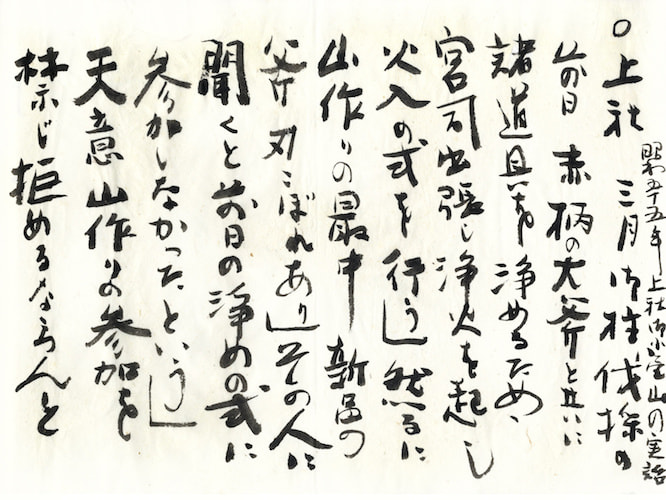 ○上社 三月御柱伐採の
昭和五十五年上社御小屋山の実話
前日 赤柄の大斧と共に
諸道具を浄めるため、
宮司出張し浄火を起し
火入の式を行う」然るに
山作りの最中 新品の
斧刃こぼれあり」その人に
聞くと前日の浄めの式に
参加しなかったという」
天意山作りの参加を
禁じ拒めるならんと